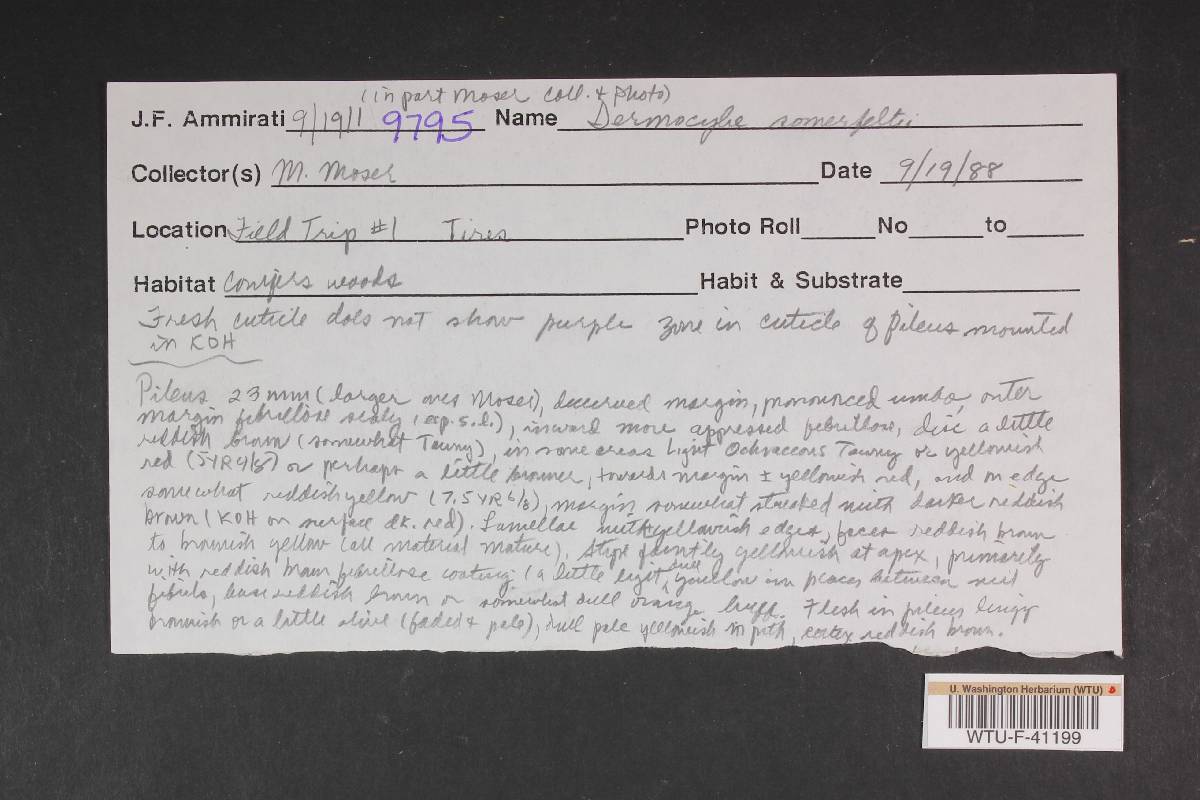 (in part Moser coll. + photo)
J.F. Ammirati 9/19/1 9795 Name Dermocybe somerfeltii
Collector(s) M. Moser Date 9/19/88
Location Field Trip #1 Tires Photo Roll No to
Habitat Conifers woods Habit & Substrate
Fresh cuticle does not show purple zone in cuticle of pileus mounted
in KOH
Pileus 23mm (larger ones Moser), decurved margin, pronounced umbo, outer
margin fibrillose scaly (esp. s.l.), inward more appressed fibrillose, disc a little
reddish brown (somewhat Tawny), in some areas Light Ochraceous Tawny or yellowish
red (5YR4/8) or perhaps a little browner, towards margin ± yellowish red, and on edge
somewhat reddish yellow (7.5YR6/8), margin somewhat streaked with darker reddish
brown (KOH on surface dk. red). Lamellae with yellowish edges, faces reddish brown
to brownish yellow (all material mature), Stipe faintly yellowish at apex, primarily
with reddish brown fibrillose coating (a little light, dull yellow in places between
fibrils, base reddish brown or somewhat dull orange buff. Flesh in pileus dingy
brownish or a little olive (faded + pale), dull pale yellowish in pith, cortex reddish brown.
U. Washington Herbarium (WTU)
WTU-F-41199